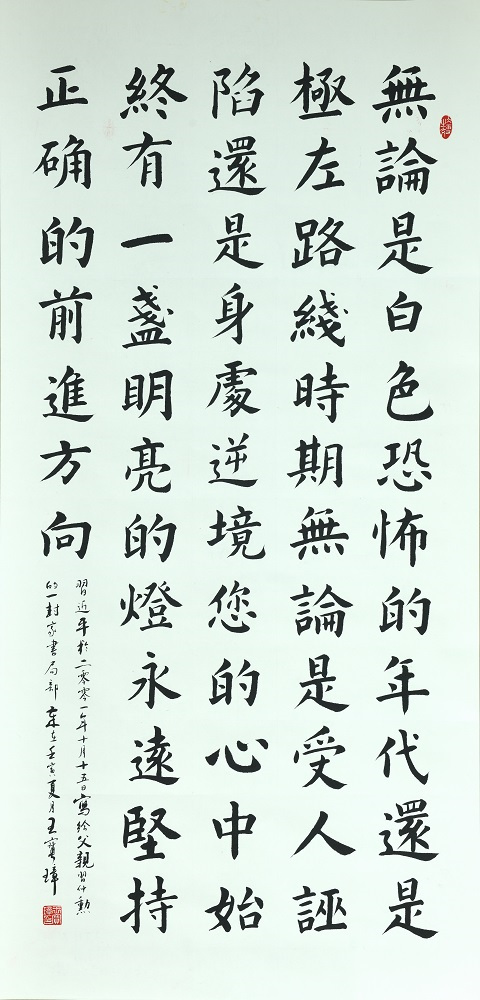 無論是白色恐怖的年代還是
極左路綫時期無論是受人誣
陷還是身處逆境您的心中始
終有一盞明亮的燈永遠堅持
正确的前進方向
習近平於二零零一年十月十五日寫给父親習仲勳
的一封家書局部 壬寅夏月王